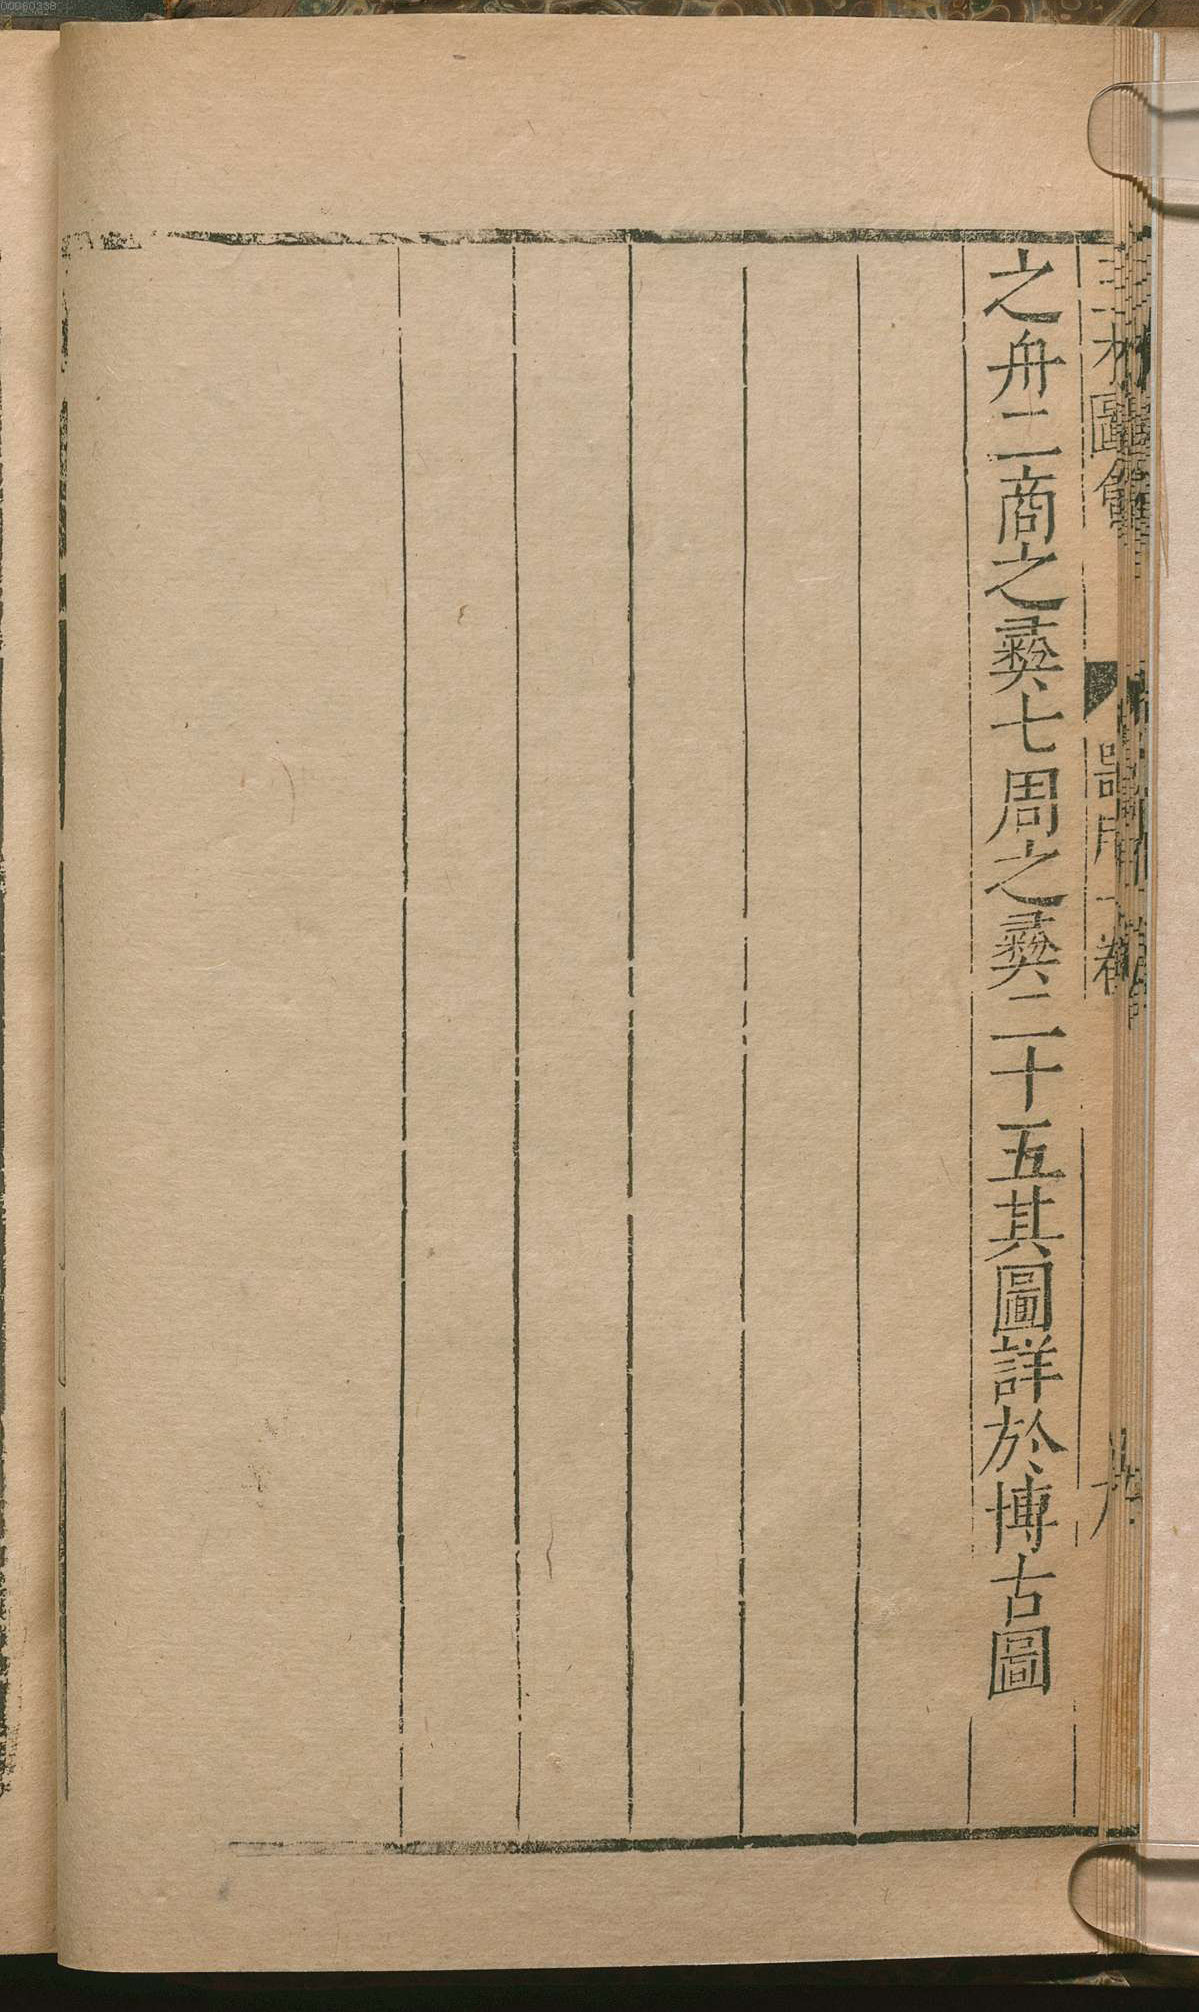 三才圖會 器用一卷
之舟二商之彞七周之彞二十五其圖詳於博古圖
00060338